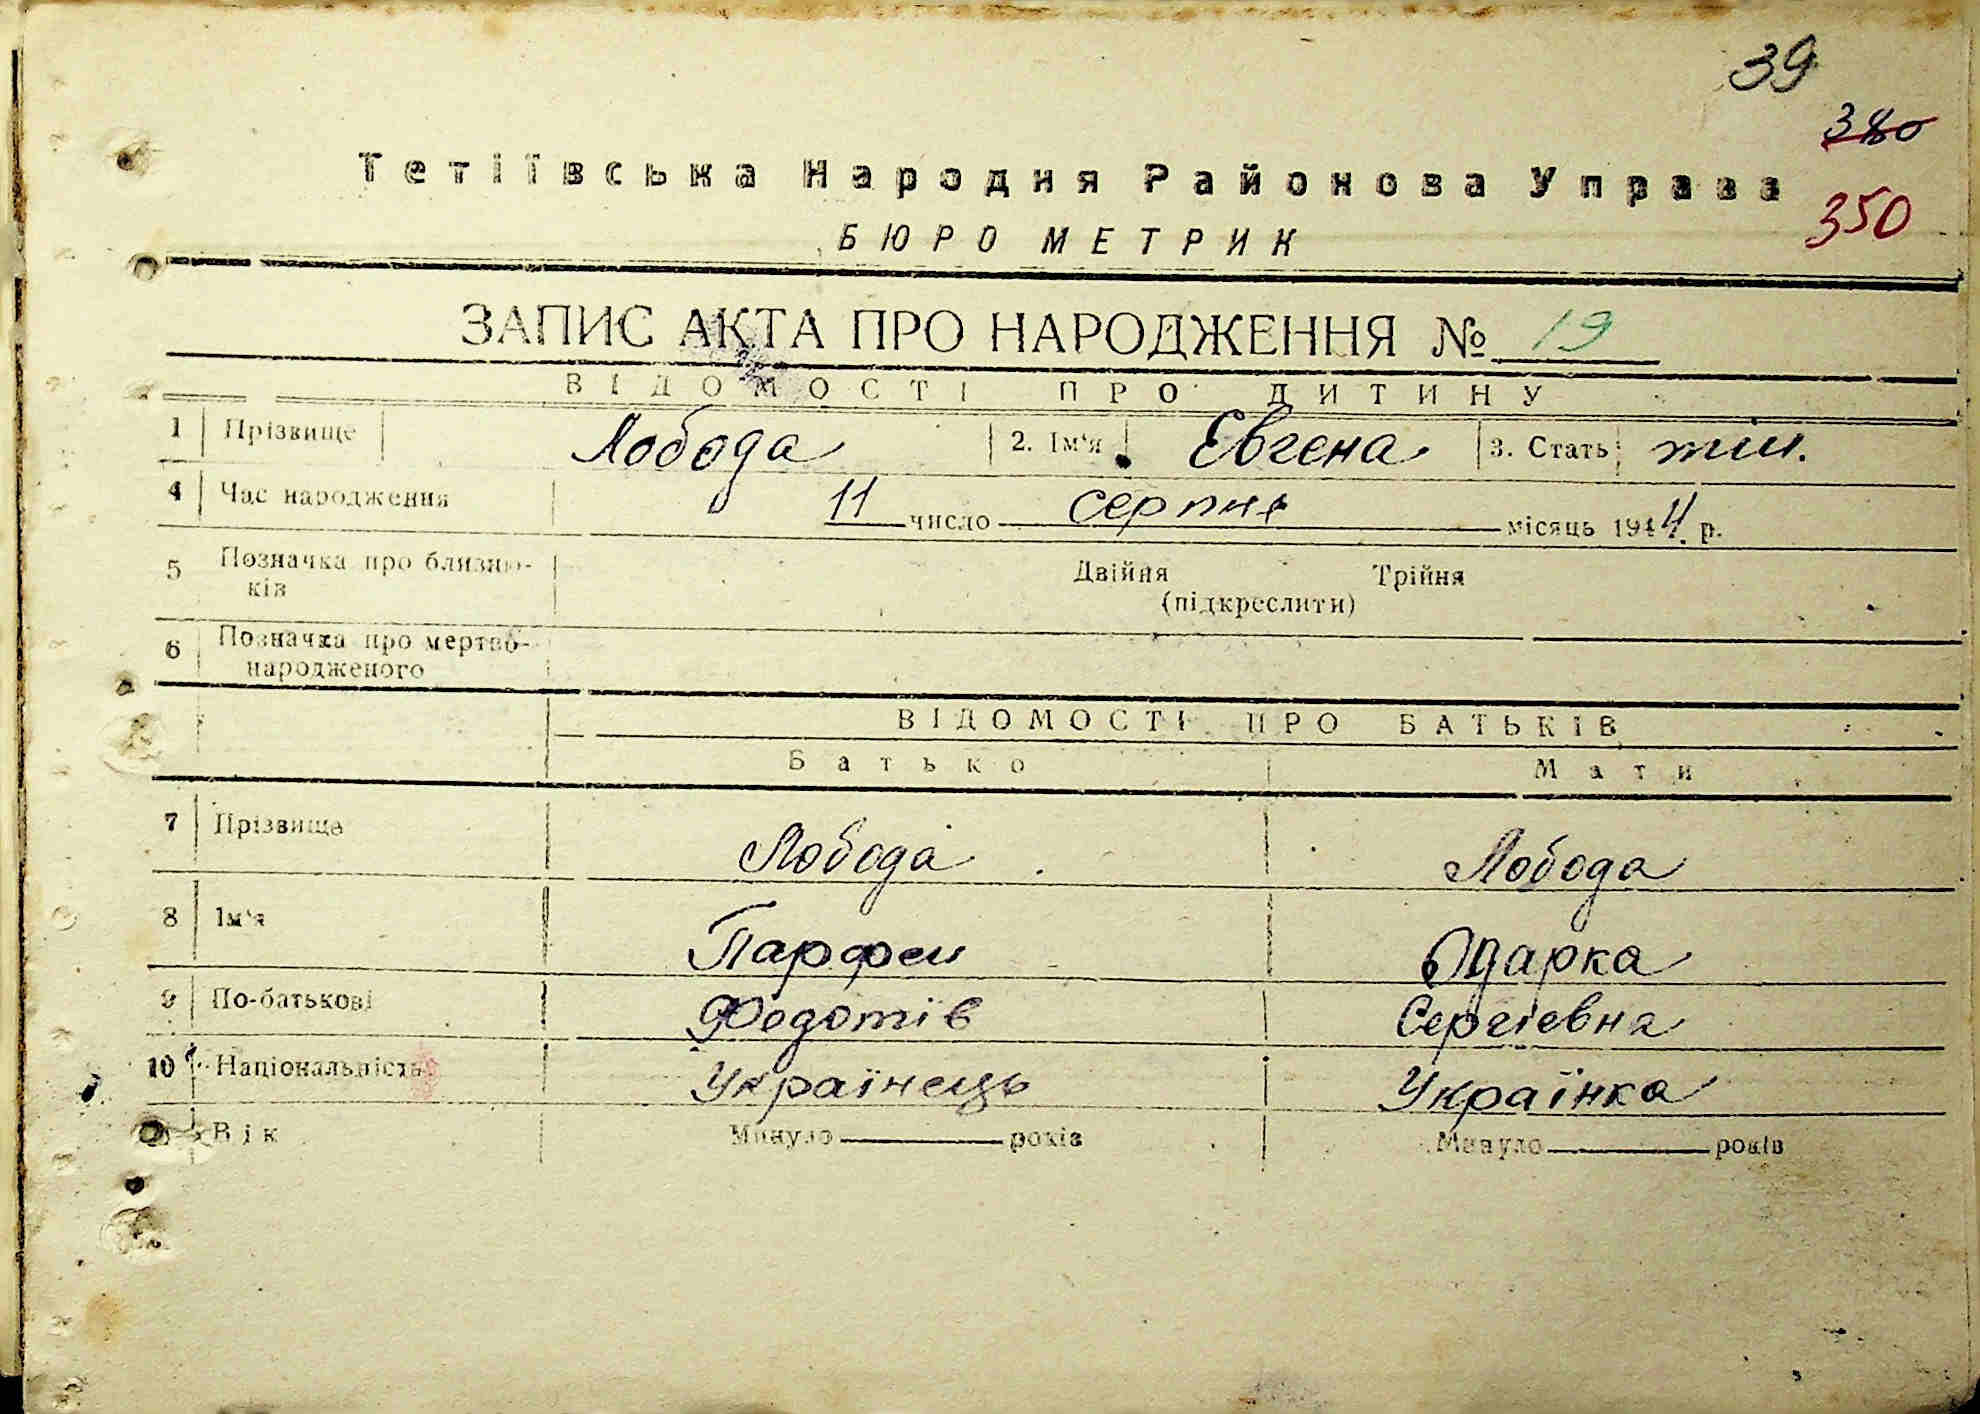 39
380
Тетіївська Народня Районова Управа
350
БЮРО МЕТРИК
ЗАПИС АКТА ПРО НАРОДЖЕННЯ № 19
ВІДОМОСТІ ПРО ДИТИНУ
1 Прізвище Лобода 2. Ім'я Евгена 3. Стать жіи.
4 Час народження 11 число серпня місяць 1944 р.
5 Позначка про близню-
ків Двійня Трійня
(підкреслити)
6 Позначка про мертво-
народженого
ВІДОМОСТІ ПРО БАТЬКІВ
Батько Мати
7 Прізвище Лобода Лобода
8 Ім'я Парфен Одарка
9 По-батькові Федотів Сергіевна
10 Національність Українець Українка
Вік Минуло років Минуло років